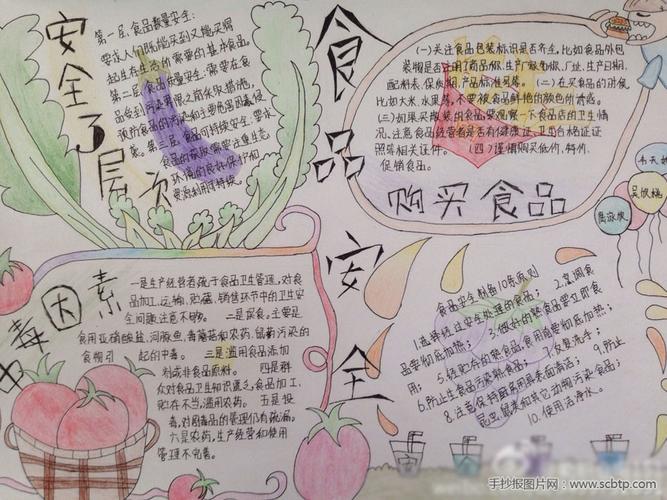 食品安全
安全了层次
第一层:食品数量安全:
要求人们既能买到又能买得
起生存生活所需要的基本食品。
第二层:食品质量安全:需要在食
品受到污染界限之前采取措施,
预防食品的污染和主要危害因素侵
袭。第三层:食品可持续安全:要求
食品的获取需要注重生态
环境的良好保护和
资源利用可持续。
(一)关注食品包装标识是否齐全,比如食品外包
装物是否注明了商品标、生产厂放电标、厂址、生产日期、
配料表、保质期、产品标准号等。(二)在买食品的时候,
比如大米、水果等,不要被食品鲜艳的颜色所诱惑。
(三)如果买散装的食品,要观察一个食品店的卫生情
况,注意食品经营者是否有健康证、卫生合格证证
照等相关证件。(四)谨慎购买低价、特价、
促销食品。
购买食品
中毒因素
一是生产经营者疏于食品卫生管理,对食
品加工、运输、贮藏、销售环节中的卫生安
全问题注意不够。二是误食,主要是
食用亚硝酸盐、河豚鱼、毒蘑菇和农药、鼠药污染的
食物引起的中毒。三是滥用食品添加
剂或非食品原料。四是群
众对食品卫生知识匮乏,食品加工、
贮存不当、滥用农药。五是投
毒,对剧毒品的管理仍有疏漏。
六是农药,生产经营和使用
管理不完善。
食品安全制备10条原则
1.选择经过安全处理的食品; 2.烹调食
品要彻底加热; 3.做好的熟食品要立即食
用; 5.经贮存的熟食品,食用前要彻底加热;
6.防止生食品污染熟食品; 7.反复洗手;
8.注意保持厨房用具表面清洁; 9.防止
昆虫、鼠类和其它动物污染食品;
10.使用洁净水。
手抄报图片网:www.scbtp.com